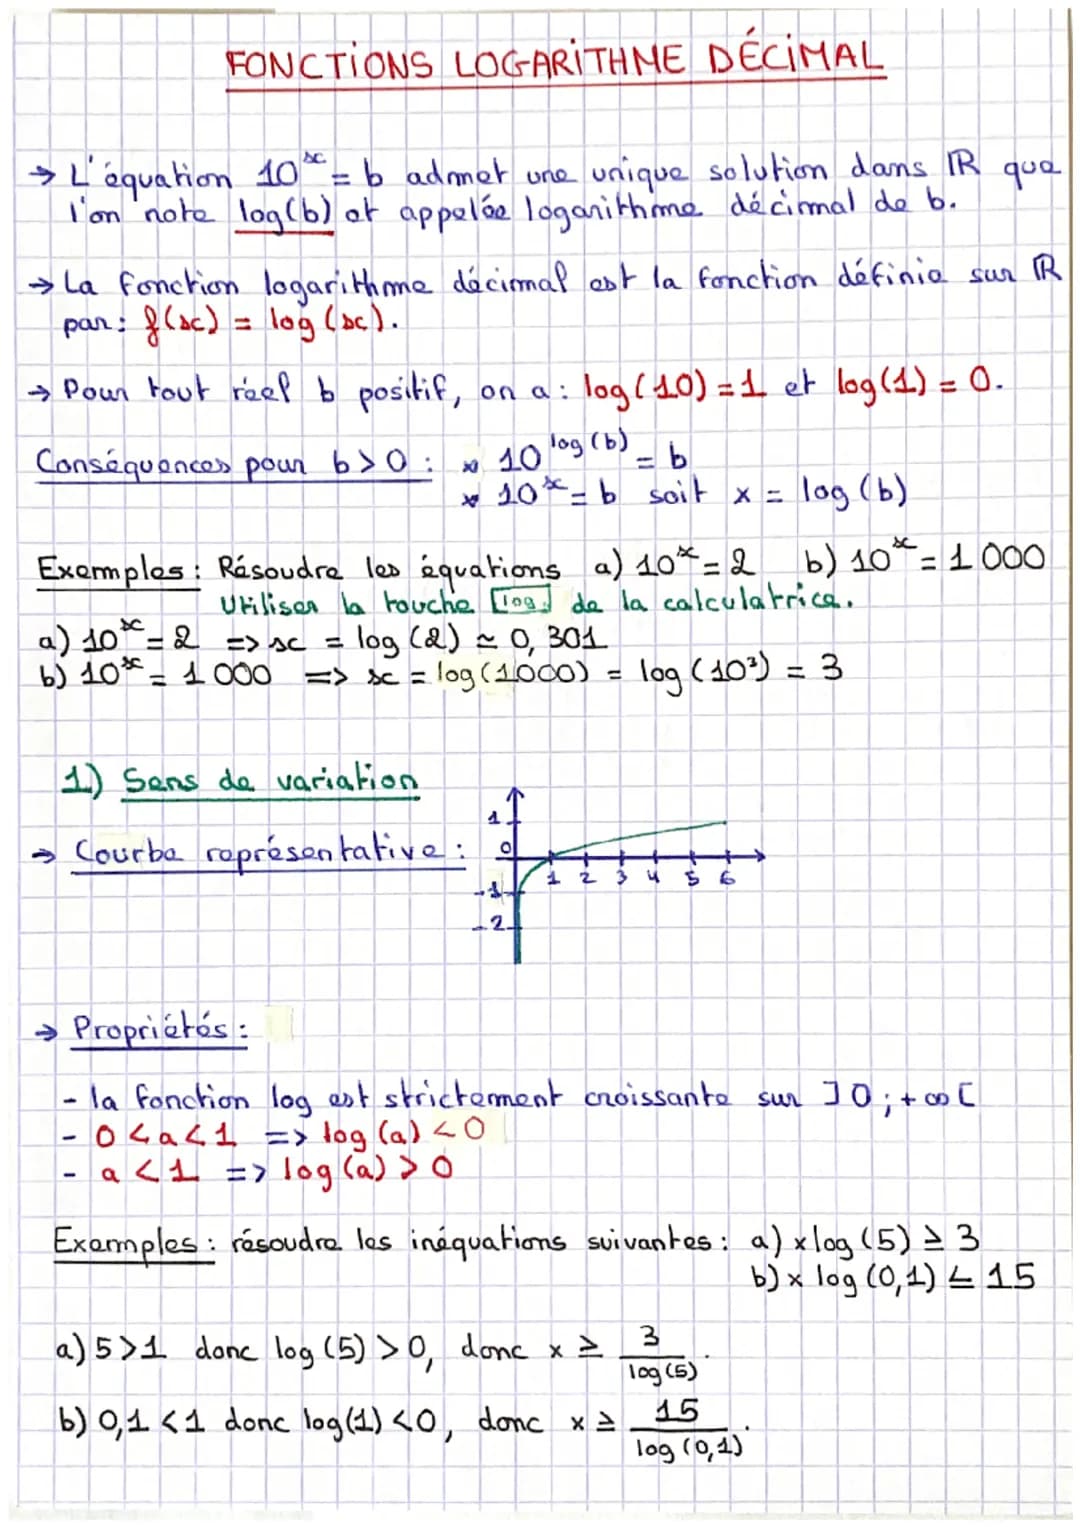 FONCTIONS LOGARITHME DÉCIMAL
→ L'équation 10^x = b admet une unique solution dans ℝ que
l'on note log(b) et appelée logarithme décimal de b.
→ La fonction logarithme décimal est la fonction définie sur ℝ
par : f(x) = log (x).
→ Pour tout réel b positif, on a : log(10) = 1 et log(1) = 0.
Conséquences pour b > 0 : * 10^log(b) = b
* 10^x = b soit x = log(b)
Exemples : Résoudre les équations a) 10^x = 2 b) 10^x = 1 000
Utiliser la touche [log] de la calculatrice.
a) 10^x = 2 => x = log(2) ≃ 0,301
b) 10^x = 1 000 => x = log(1000) = log(10³) = 3
1) Sens de variation
→ Courbe représentative :
1
0
1 2 3 4 5 6
-1
-2
→ Propriétés :
- la fonction log est strictement croissante sur ]0 ; +∞[
- 0 < a < 1 => log(a) < 0
- a < 1 => log(a) > 0
Exemples : résoudre les inéquations suivantes : a) x log(5) ≥ 3
b) x log(0,1) ≤ 15
a) 5 > 1 donc log(5) > 0, donc x ≥ 3/log(5).
b) 0,1 < 1 donc log(1) < 0, donc x ≥ 15/log(0,1).